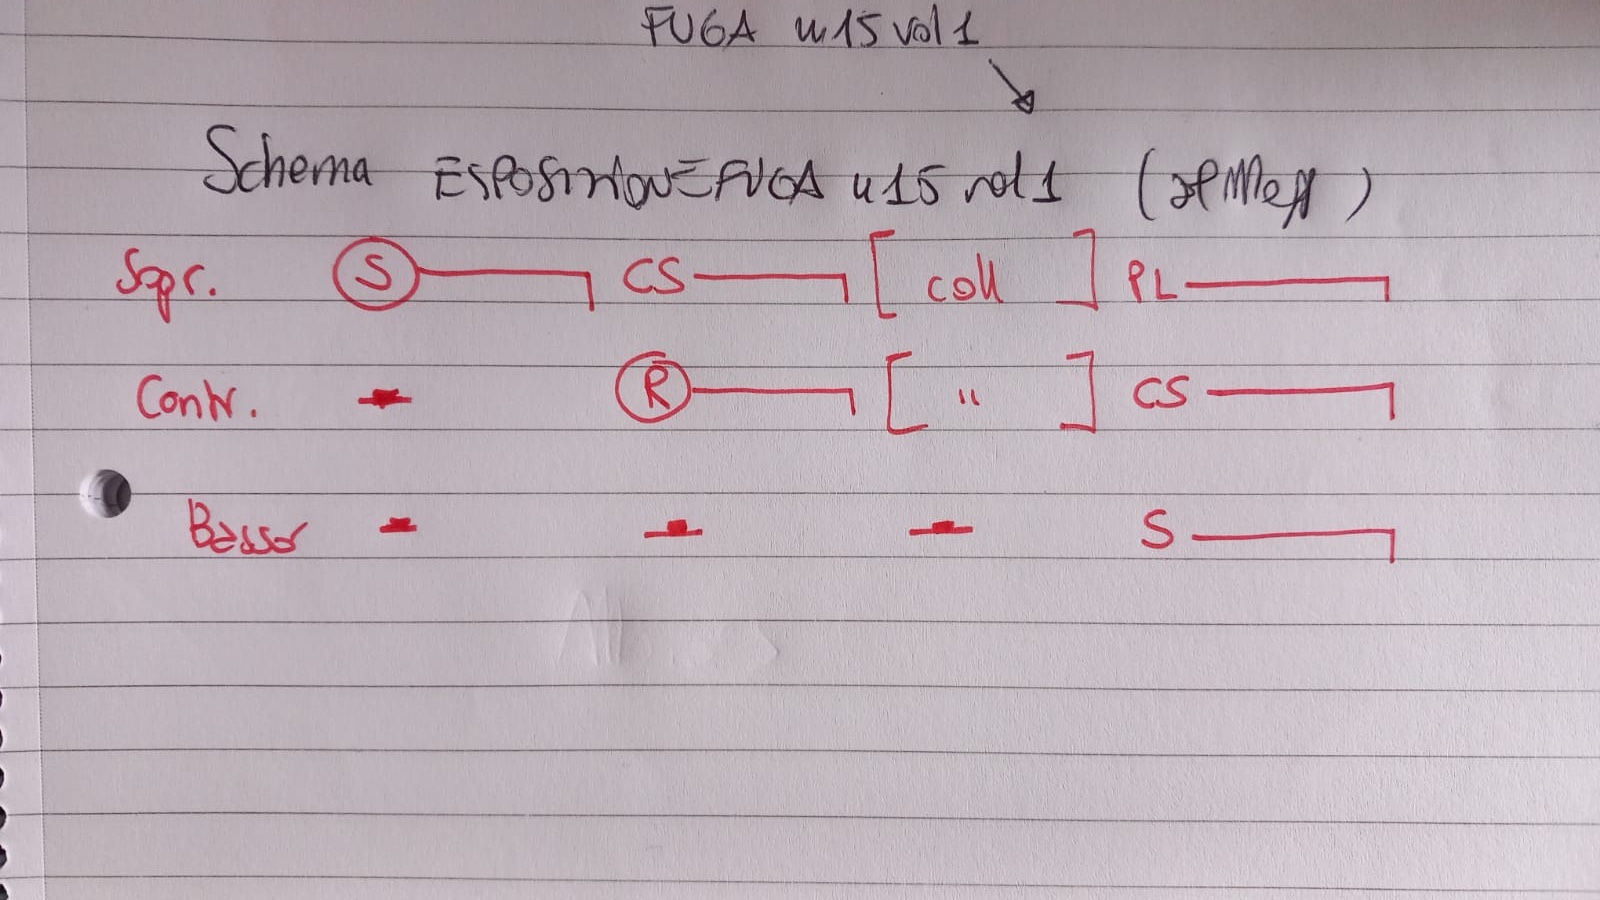 FUGA n15 vol 1
Schema ESPOSIZIONE FUGA n 15 vol 1
Sopr. S CS [ coll ] PL
Contr. R [ " ] CS
Basso S